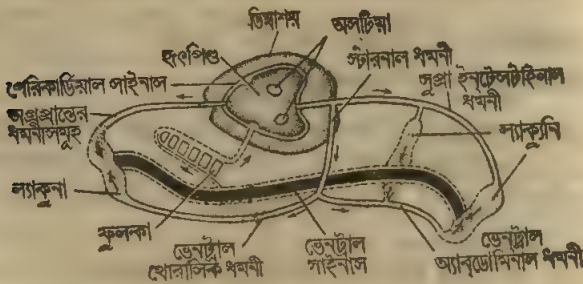 ডিম্বাশয়
অসটিয়া
হৃৎপিণ্ড
স্টারনাল ধমনী
পেরিকার্ডিয়াল সাইনাস
সুপ্রা ইনটেসটাইনাল
ধমনী
অগ্রপ্রান্তের
ধমনীসমূহ
ল্যাকুনি
ল্যাকুনা
ফুলকা
ভেনট্রাল
থোরাসিক ধমনী
ভেনট্রাল
সাইনাস
ভেনট্রাল
অ্যাবডোমিনাল ধমনী